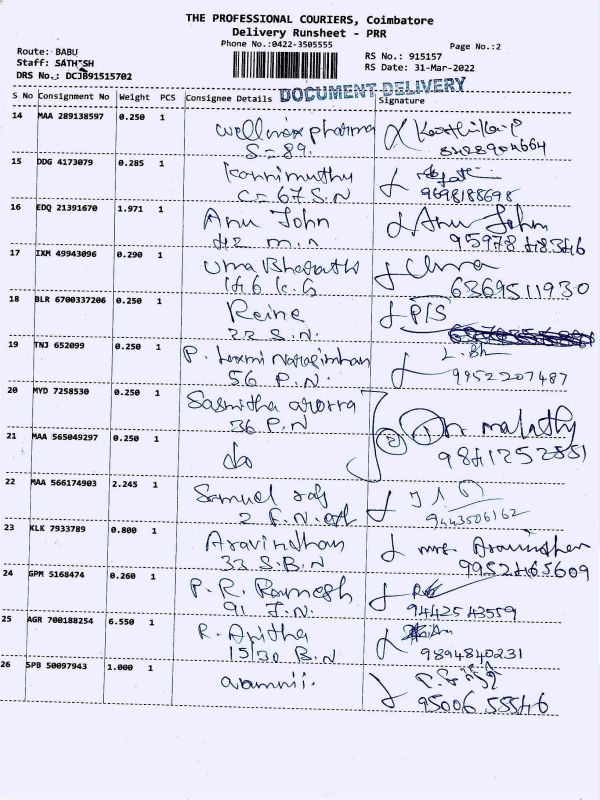 THE PROFESSIONAL COURIERS, Coimbatore
Delivery Runsheet - PRR
Phone No.:0422-3505555
Page No.:2
Route: BABU
RS No.: 915157
Staff: SATHISH
RS Date: 31-Mar-2022
DRS No.: DCJB91515702
DOCUMENT DELIVERY
S No Consignment No Weight PCS Consignee Details Signature
14 MAA 289138597 0.250 1 wellmax pharma
S=89.
15 DDG 4173079 0.285 1 Kannimuthu
C=67 S.N 9698188698
16 EDQ 21391670 1.971 1 Anu John Anu John
42 m.n 95978 48346
17 IXM 49943096 0.290 1 Uma Bharathi Uma
146 K.G 6369511930
18 BLR 6700337206 0.250 1 Reine P/S
22 S.N.
19 TNJ 652099 0.250 1 P. Laxmi Narasimhan
56 P.N. 9952207487
20 MYD 7258530 0.250 1 Sasmitha arorra malathy
36 P.N 9841252551
21 MAA 565049297 0.250 1 do
22 MAA 566174903 2.245 1 Samuel raj
2 F.N. 9443506162
23 KLK 7933789 0.800 1 Aravindhan
33 S.B.N 9952465609
24 GPM 5168474 0.260 1 P. R. Ramesh
91 J.N. 9442543559
25 AGR 700188254 6.550 1 R. Anitha
15/30 B.N 9894840231
26 SPB 50097943 1.000 1
95006 55546